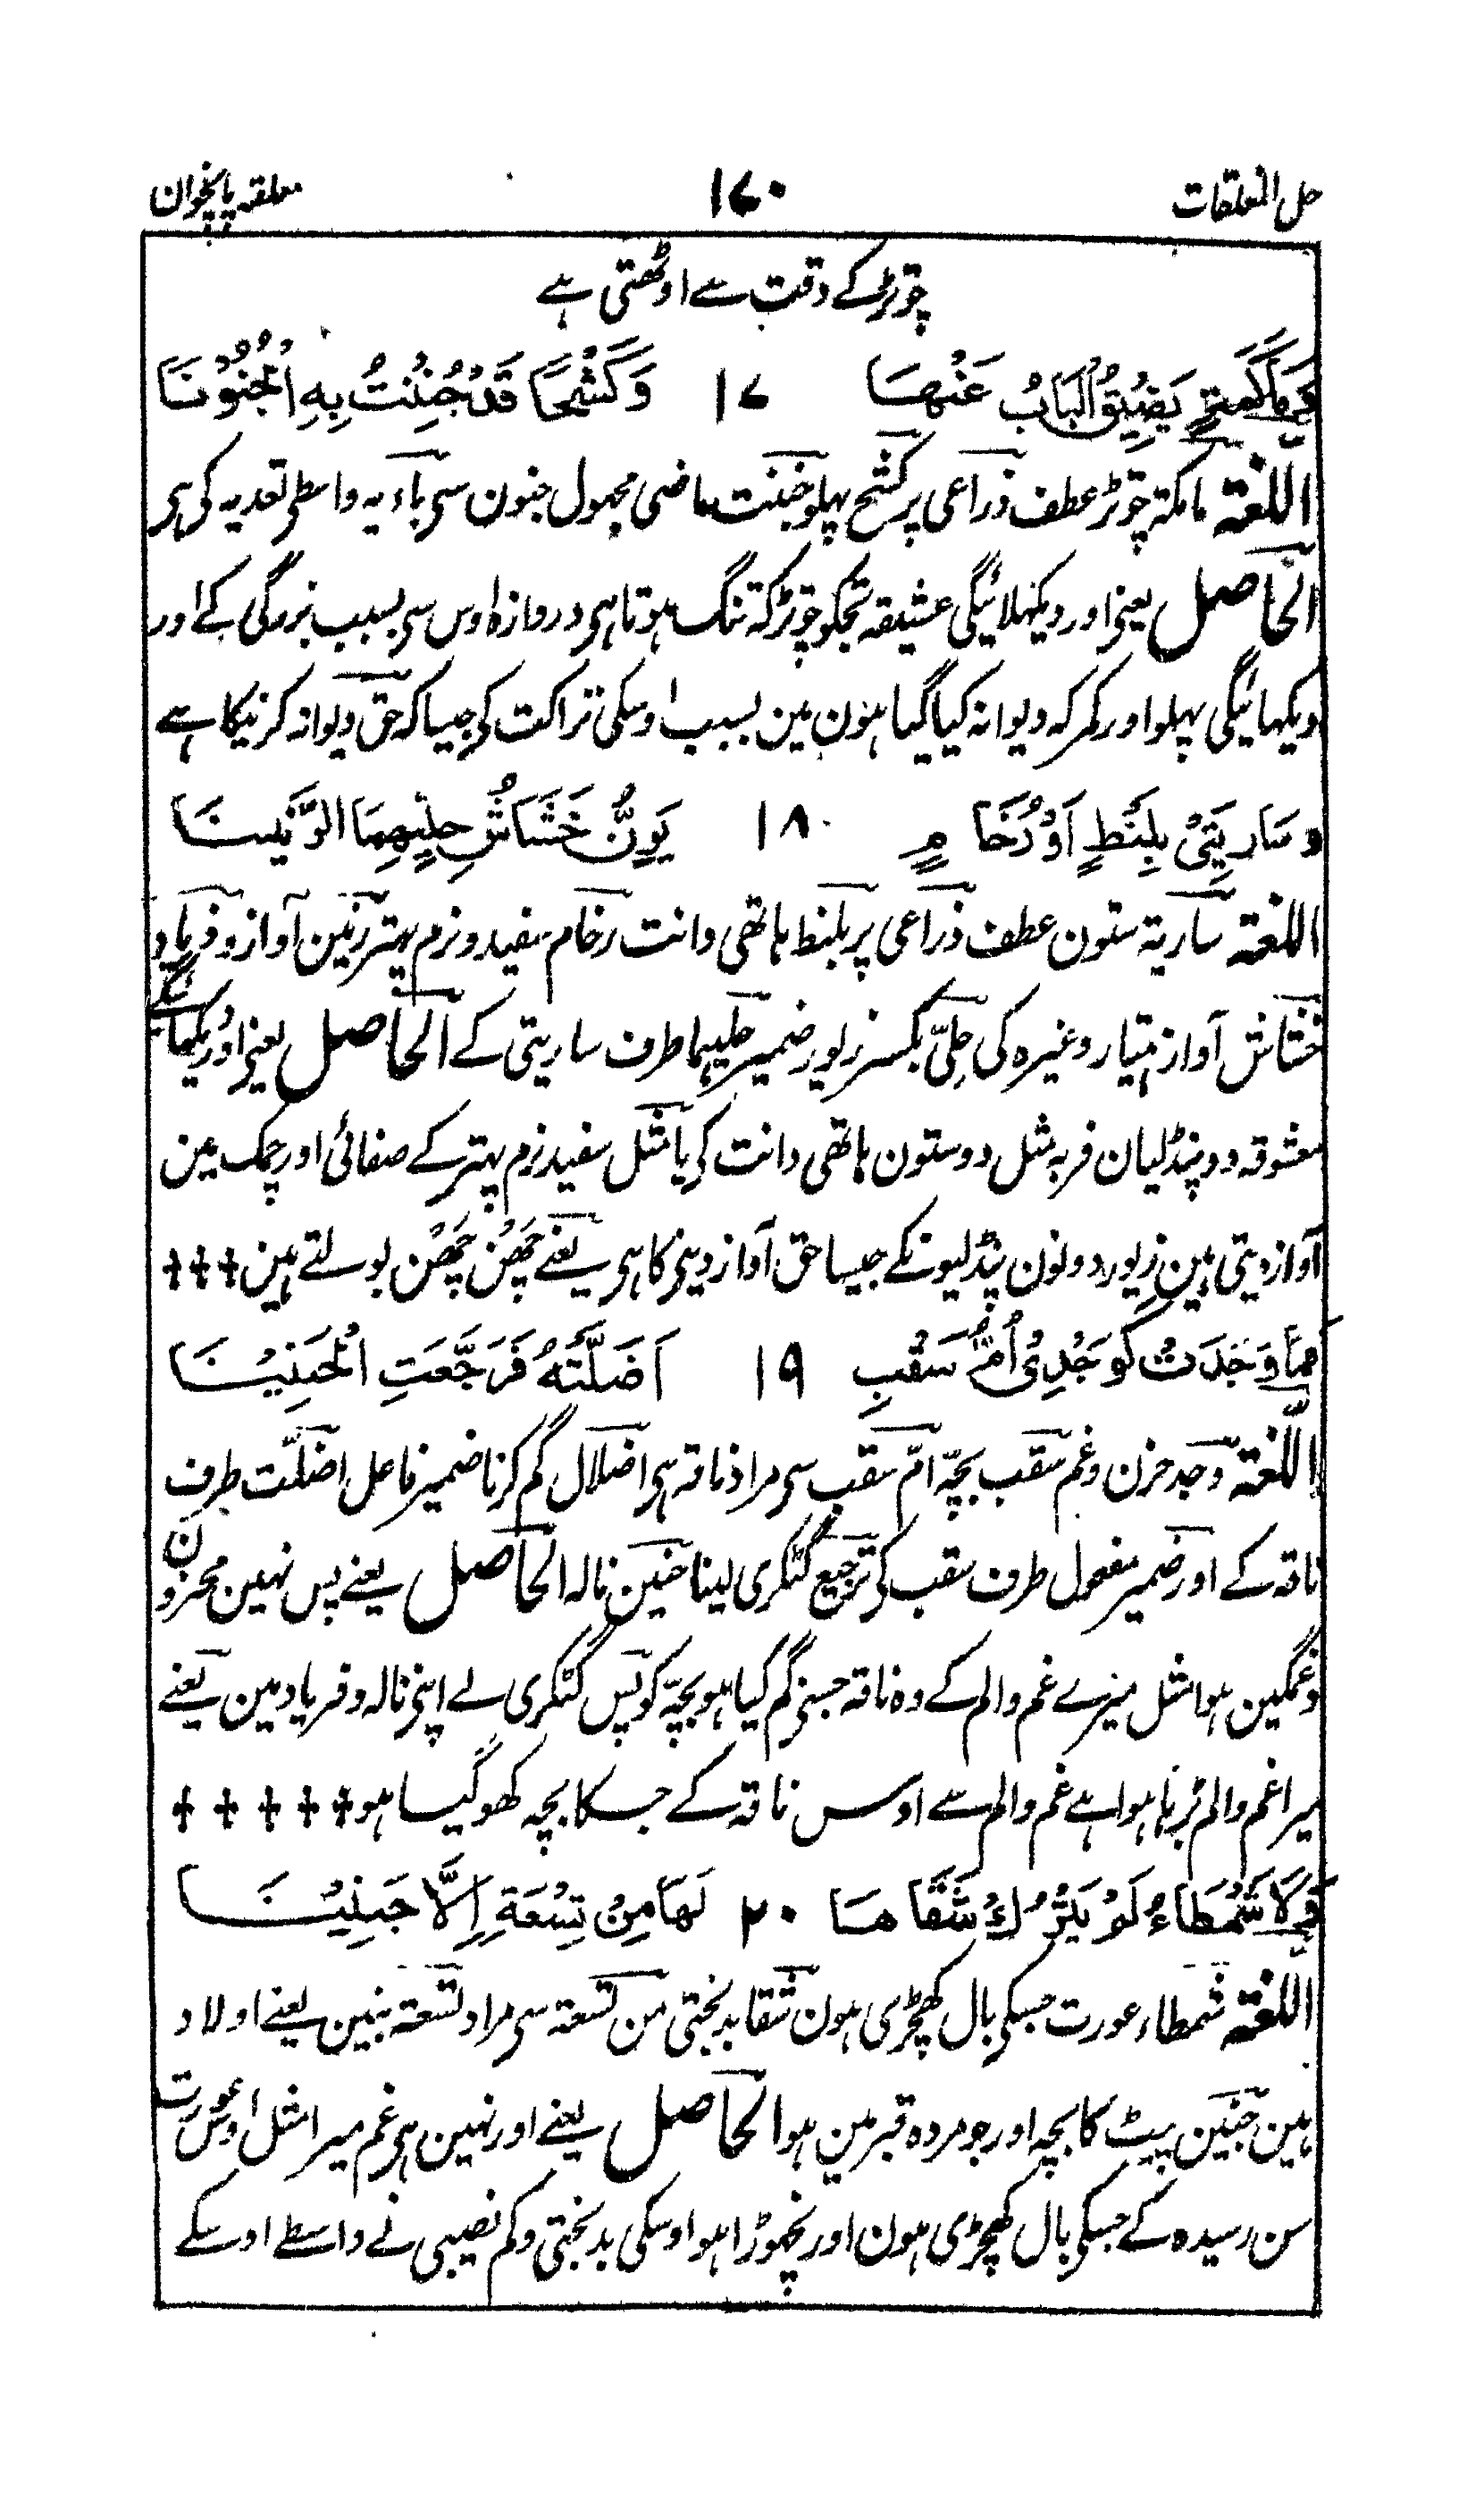 حل المعلقات ١٧٠ معلقہ پانچوان
چوتڑ کے دقت سے اوٹھتی ہے
وَمَاكَمَةٍ يَضِيقُ الْبَابُ عَنْهَا ١٧ وَكَشْحًا قَدْ جُنِنْتُ بِهِ الْجُنُوْنَا
اللغة ماکمۃ چوتڑ عطف ذراعی پر کشح پہلو جننت ماضی مجہول جنون سی باء بہ واسطی تعدیہ کی ہی
الحاصل یعنی اور دیکہلائیگی عشیقہ تجکو چوتڑ کہ تنگ ہوتا ہی دروازہ اوس سی بسبب بزرگی کے اور
دیکہائیگی پہلو اور کمر کہ دیوانہ کیا گیا ہون مین بسبب اوسکی نزاکت کی جیسا کہ حق دیوانہ کرنیکا ہے
وسَارِيَتَيْ بِلَنْطٍ اَوْ رُخَامٍ ١٨ يَرِنُّ خَشَاشُ حَلْيِهِمَا الرَّنِيْنَا
اللغة ساریۃ ستون عطف ذراعی پر بلنط ہاتھی دانت رخام سفید و نرم پہتر رنین آواز و فریاد
خشاش آواز ہتیار وغیرہ کی حلی بکسر زیور ضمیر حلیہما طرف ساریتی کے الحاصل یعنی اور دیکہائیگی
معشوقہ دو پنڈلیان فربہ مثل دو ستون ہاتھی دانت کی یا مثل سفید نرم پہتر کے صفائی اور چمک مین
آواز دیتی ہین زیور دونون پنڈلیونکے جیسا حق آواز دینی کا ہی یعنے چھن چھن بولتے ہین +++
فَمَا وَجَدَتْ كَوَجْدِيْ اُمُّ سَقْبٍ ١٩ اَضَلَّتْهُ فَرَجَّعَتِ الْحَنِيْنَا
اللغة وجد حزن و غم سقب بچہ ام سقب سی مراد ناقہ ہی اضلال گم کرنا ضمیر فاعل اضلت طرف
ناقہ کے اور ضمیر مفعول طرف سقب کی ترجیع گٹکری لینا حنین نالہ الحاصل یعنے پس نہین محزون
و غمگین ہوا مثل میرے غم و الم کے وہ ناقہ جسنی گم کیا ہو بچہ کو پس گٹکری لے اپنی نالہ و فریاد مین یعنے
میرا غم و الم بڑہا ہوا ہے غم و الم سے اوس ناقہ کے جسکا بچہ کھو گیا ہو +++++
وَلَا شَمْطَاءُ لَمْ يَتْرُكْ شَقَاهَا ٢٠ لَهَا مِنْ تِسْعَةٍ اِلَّا جَنِيْنَا
اللغة شمطاء عورت جسکی بال کھچڑی ہون شقا بدبختی من تسعۃ سی مراد تسعۃ بنین یعنے اولاد
ہین جنین پیٹ کا بچہ اور جو مردہ قبر مین ہو الحاصل یعنے اور نہین ہی غم میرا مثل اوس عورت
سن رسیدہ کے جسکی بال کھچڑی ہون اور نچھوڑا ہو اوسکی بدبختی و کم نصیبی نے واسطے اوسکے